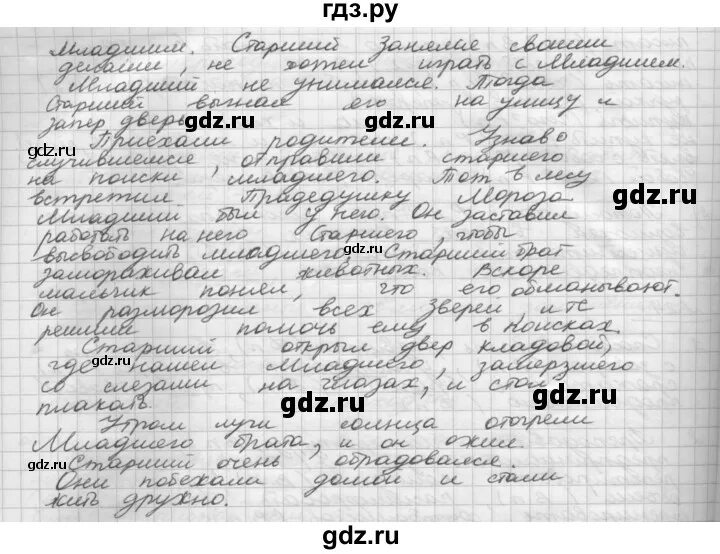 гдз.ру
младшим. Старший занялся своими
делами, не хотел играть с Младшим.
Младший не унимался. Тогда
Старший выгнал его на улицу и
запер дверь.
gdz.ru gdz.ru
Приехали родители. Узнав о
случившемся, отправили старшего
gdz.ru
на поиски младшего. Тот в лесу
встретил Прадедушку Мороза
gdz.ru
Младший был у него. Он заставил
работать на него Старшего, чтобы
высвободить младшего. Старший брат
gdz.ru gdz.ru
замораживал животных. Вскоре
мальчик понял, что его обманывают.
Он разморозил всех зверей, и те
решили помочь ему в поисках.
gdz.ru
Старший открыл двер кладовой,
где нашел Младшего, замерзшего
со слезами на глазах, и стал
gdz.ru gdz.ru
плакать.
Утром лучи солнца отогрели
Младшего брата, и он ожил.
gdz.ru
Старший очень обрадовался.
gdz.ru
Они побежали домой и стали
жить дружно.
gdz.ru
gdz.ru